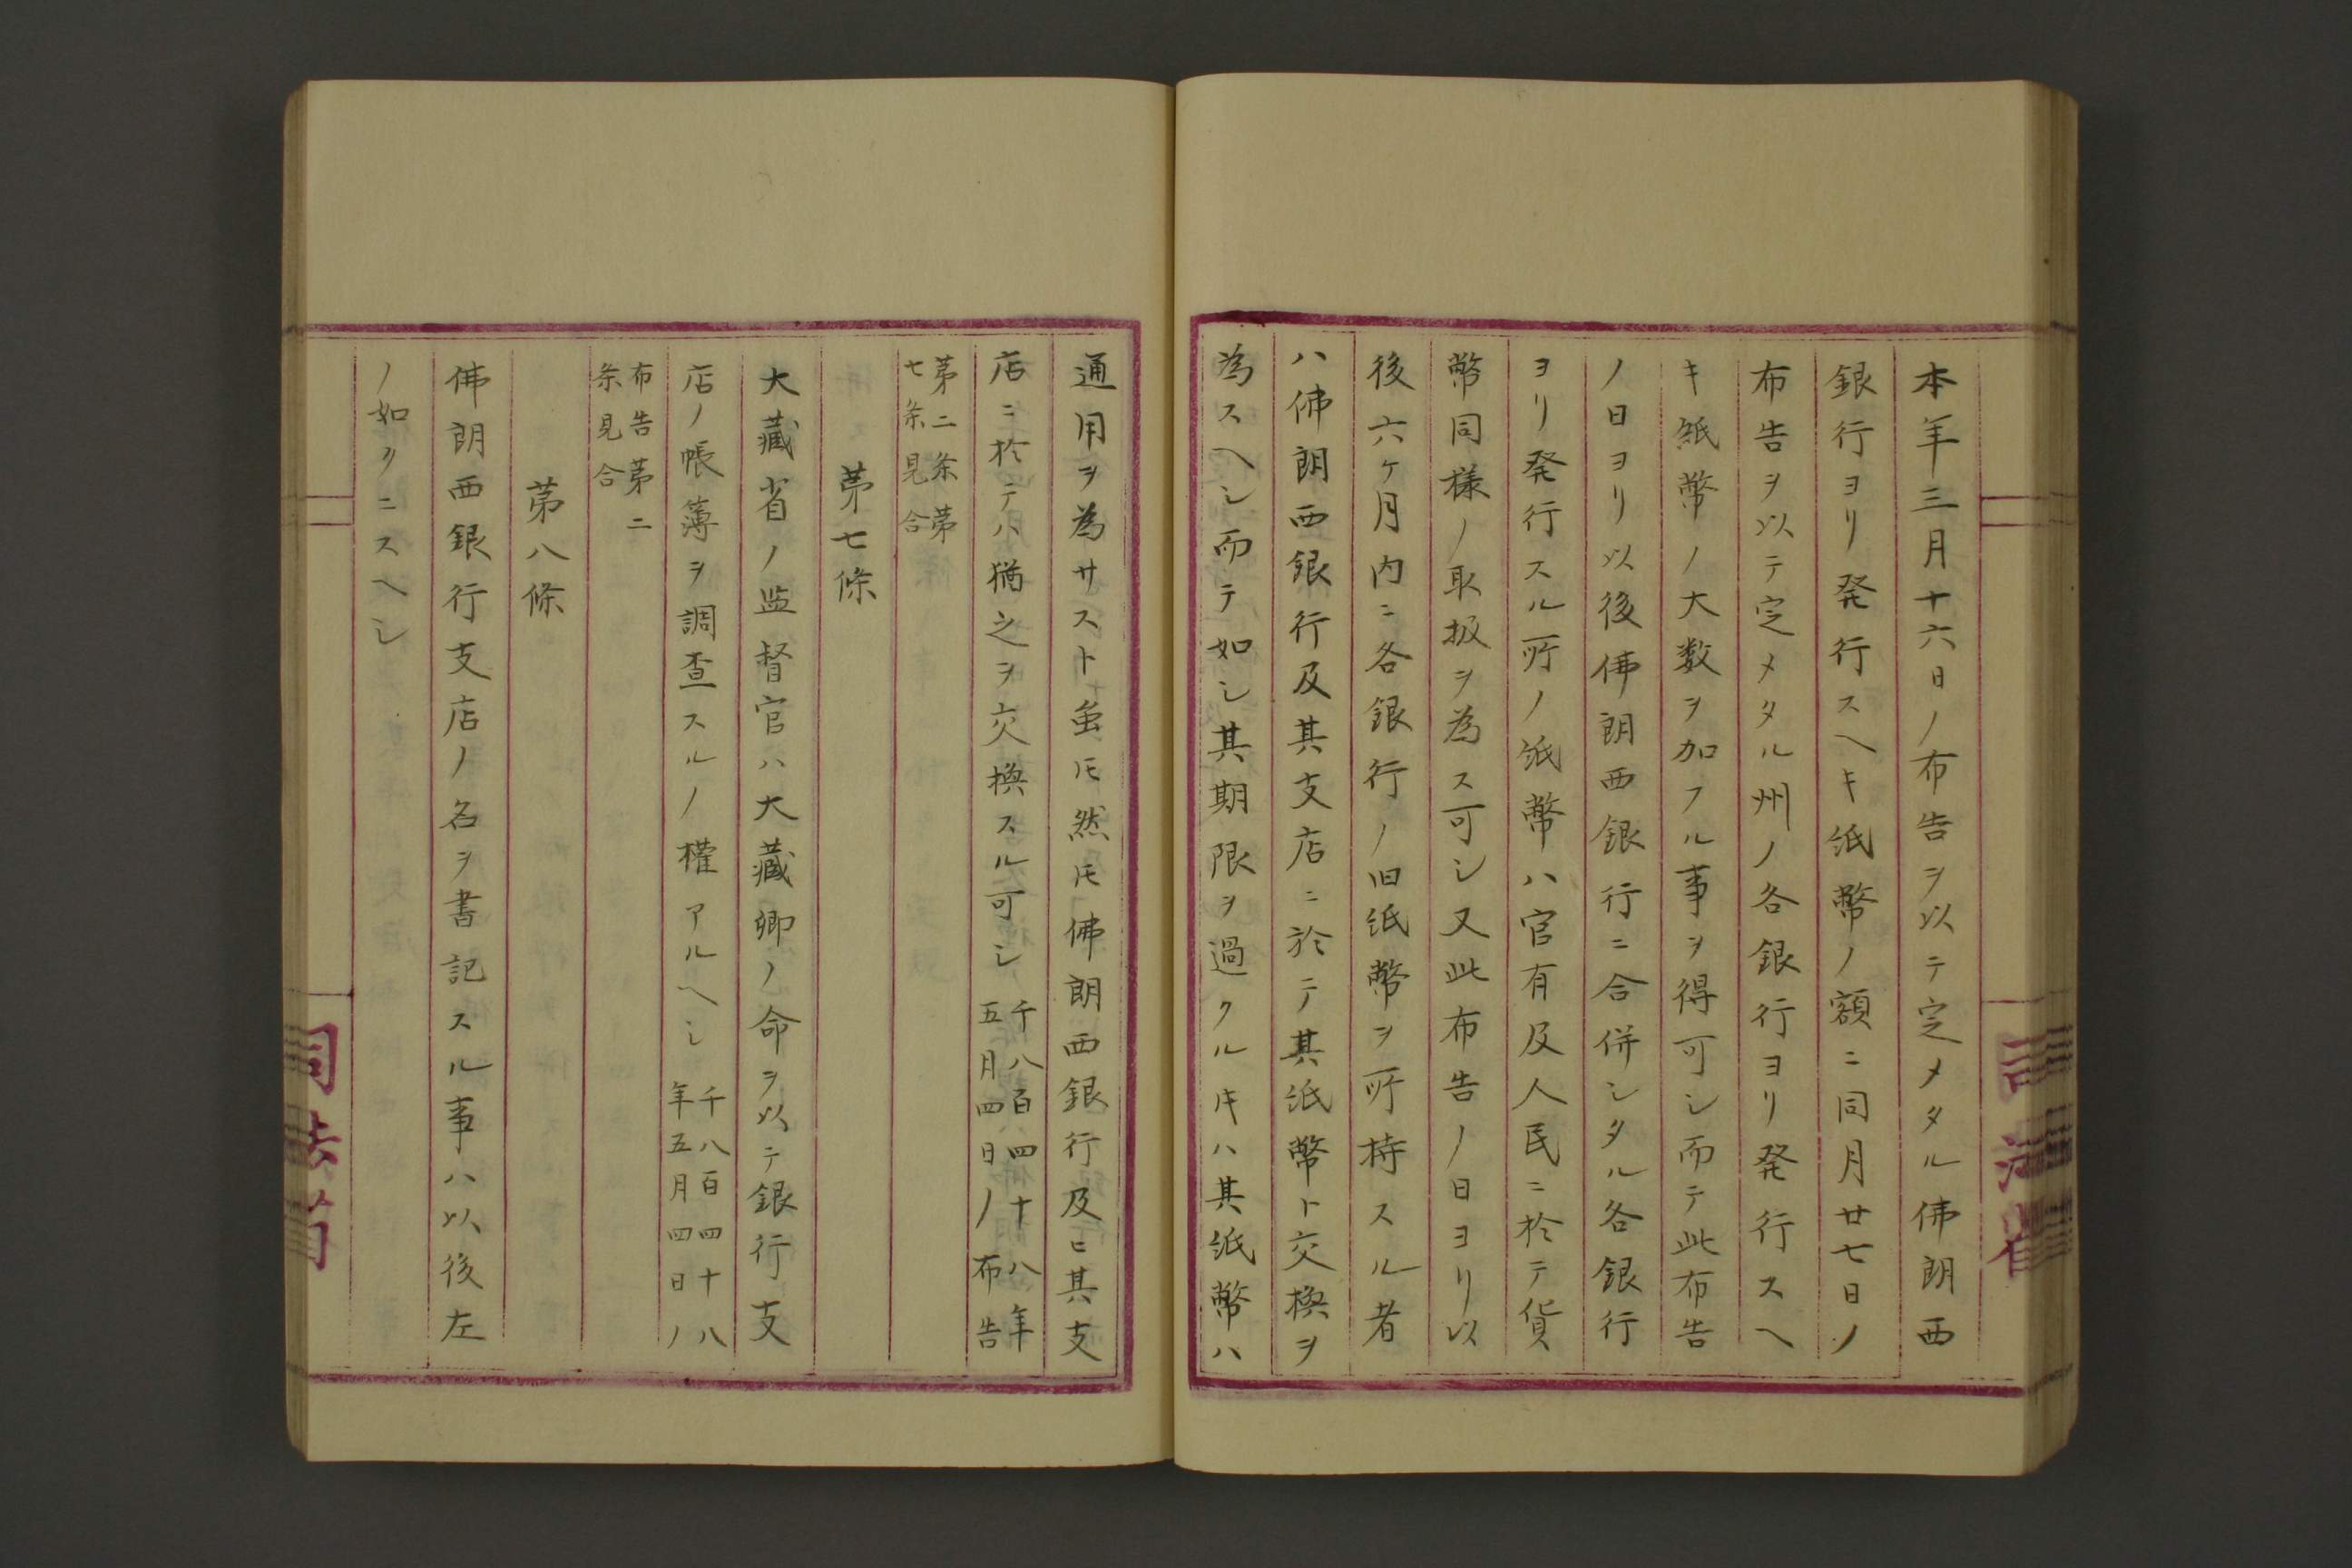 本年三月十六日ノ布告ヲ以テ定メタル佛朗西
銀行ヨリ発行スヘキ紙幣ノ額ニ同月廿七日ノ
布告ヲ以テ定メタル州ノ各銀行ヨリ発行スヘ
キ紙幣ノ大数ヲ加フル事ヲ得可シ而テ此布告
ノ日ヨリ以後佛朗西銀行ニ合併シタル各銀行
ヨリ発行スル所ノ紙幣ハ官有及人民ニ於テ貨
幣同様ノ取扱ヲ為ス可シ又此布告ノ日ヨリ以
後六ケ月内ニ各銀行ノ旧紙幣ヲ所持スル者
ハ佛朗西銀行及其支店ニ於テ其紙幣ト交換ヲ
為スヘシ而テ如シ其期限ヲ過クル片ハ其紙幣ハ
通用ヲ為サスト虽𪜈然𪜈佛朗西銀行及ヒ其支
店ニ於テハ猶之ヲ交換スル可シ千八百四十八年
五月四日ノ布告
第二条第
七条見合
第七條
大藏省ノ監督官ハ大藏卿ノ命ヲ以テ銀行支
店ノ帳簿ヲ調査スルノ權アルヘシ千八百四十八
年五月四日ノ
布告第二
条見合
第八條
佛朗西銀行支店ノ名ヲ書記スル事ハ以後左
ノ如クニスヘシ
司法省